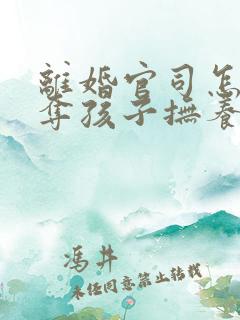 離婚官司怎
奪孩子撫養
馮井
未經同意禁止轉載